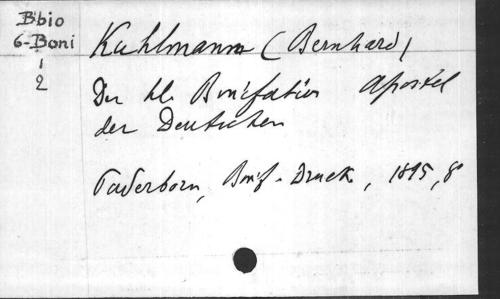 Bbio
6-Boni
1
2
Kuhlmann (Bernhard)
Der hl. Bonifatius Apostel
der Deutschen
Paderborn, Bonif-Druck, 1895, 8°